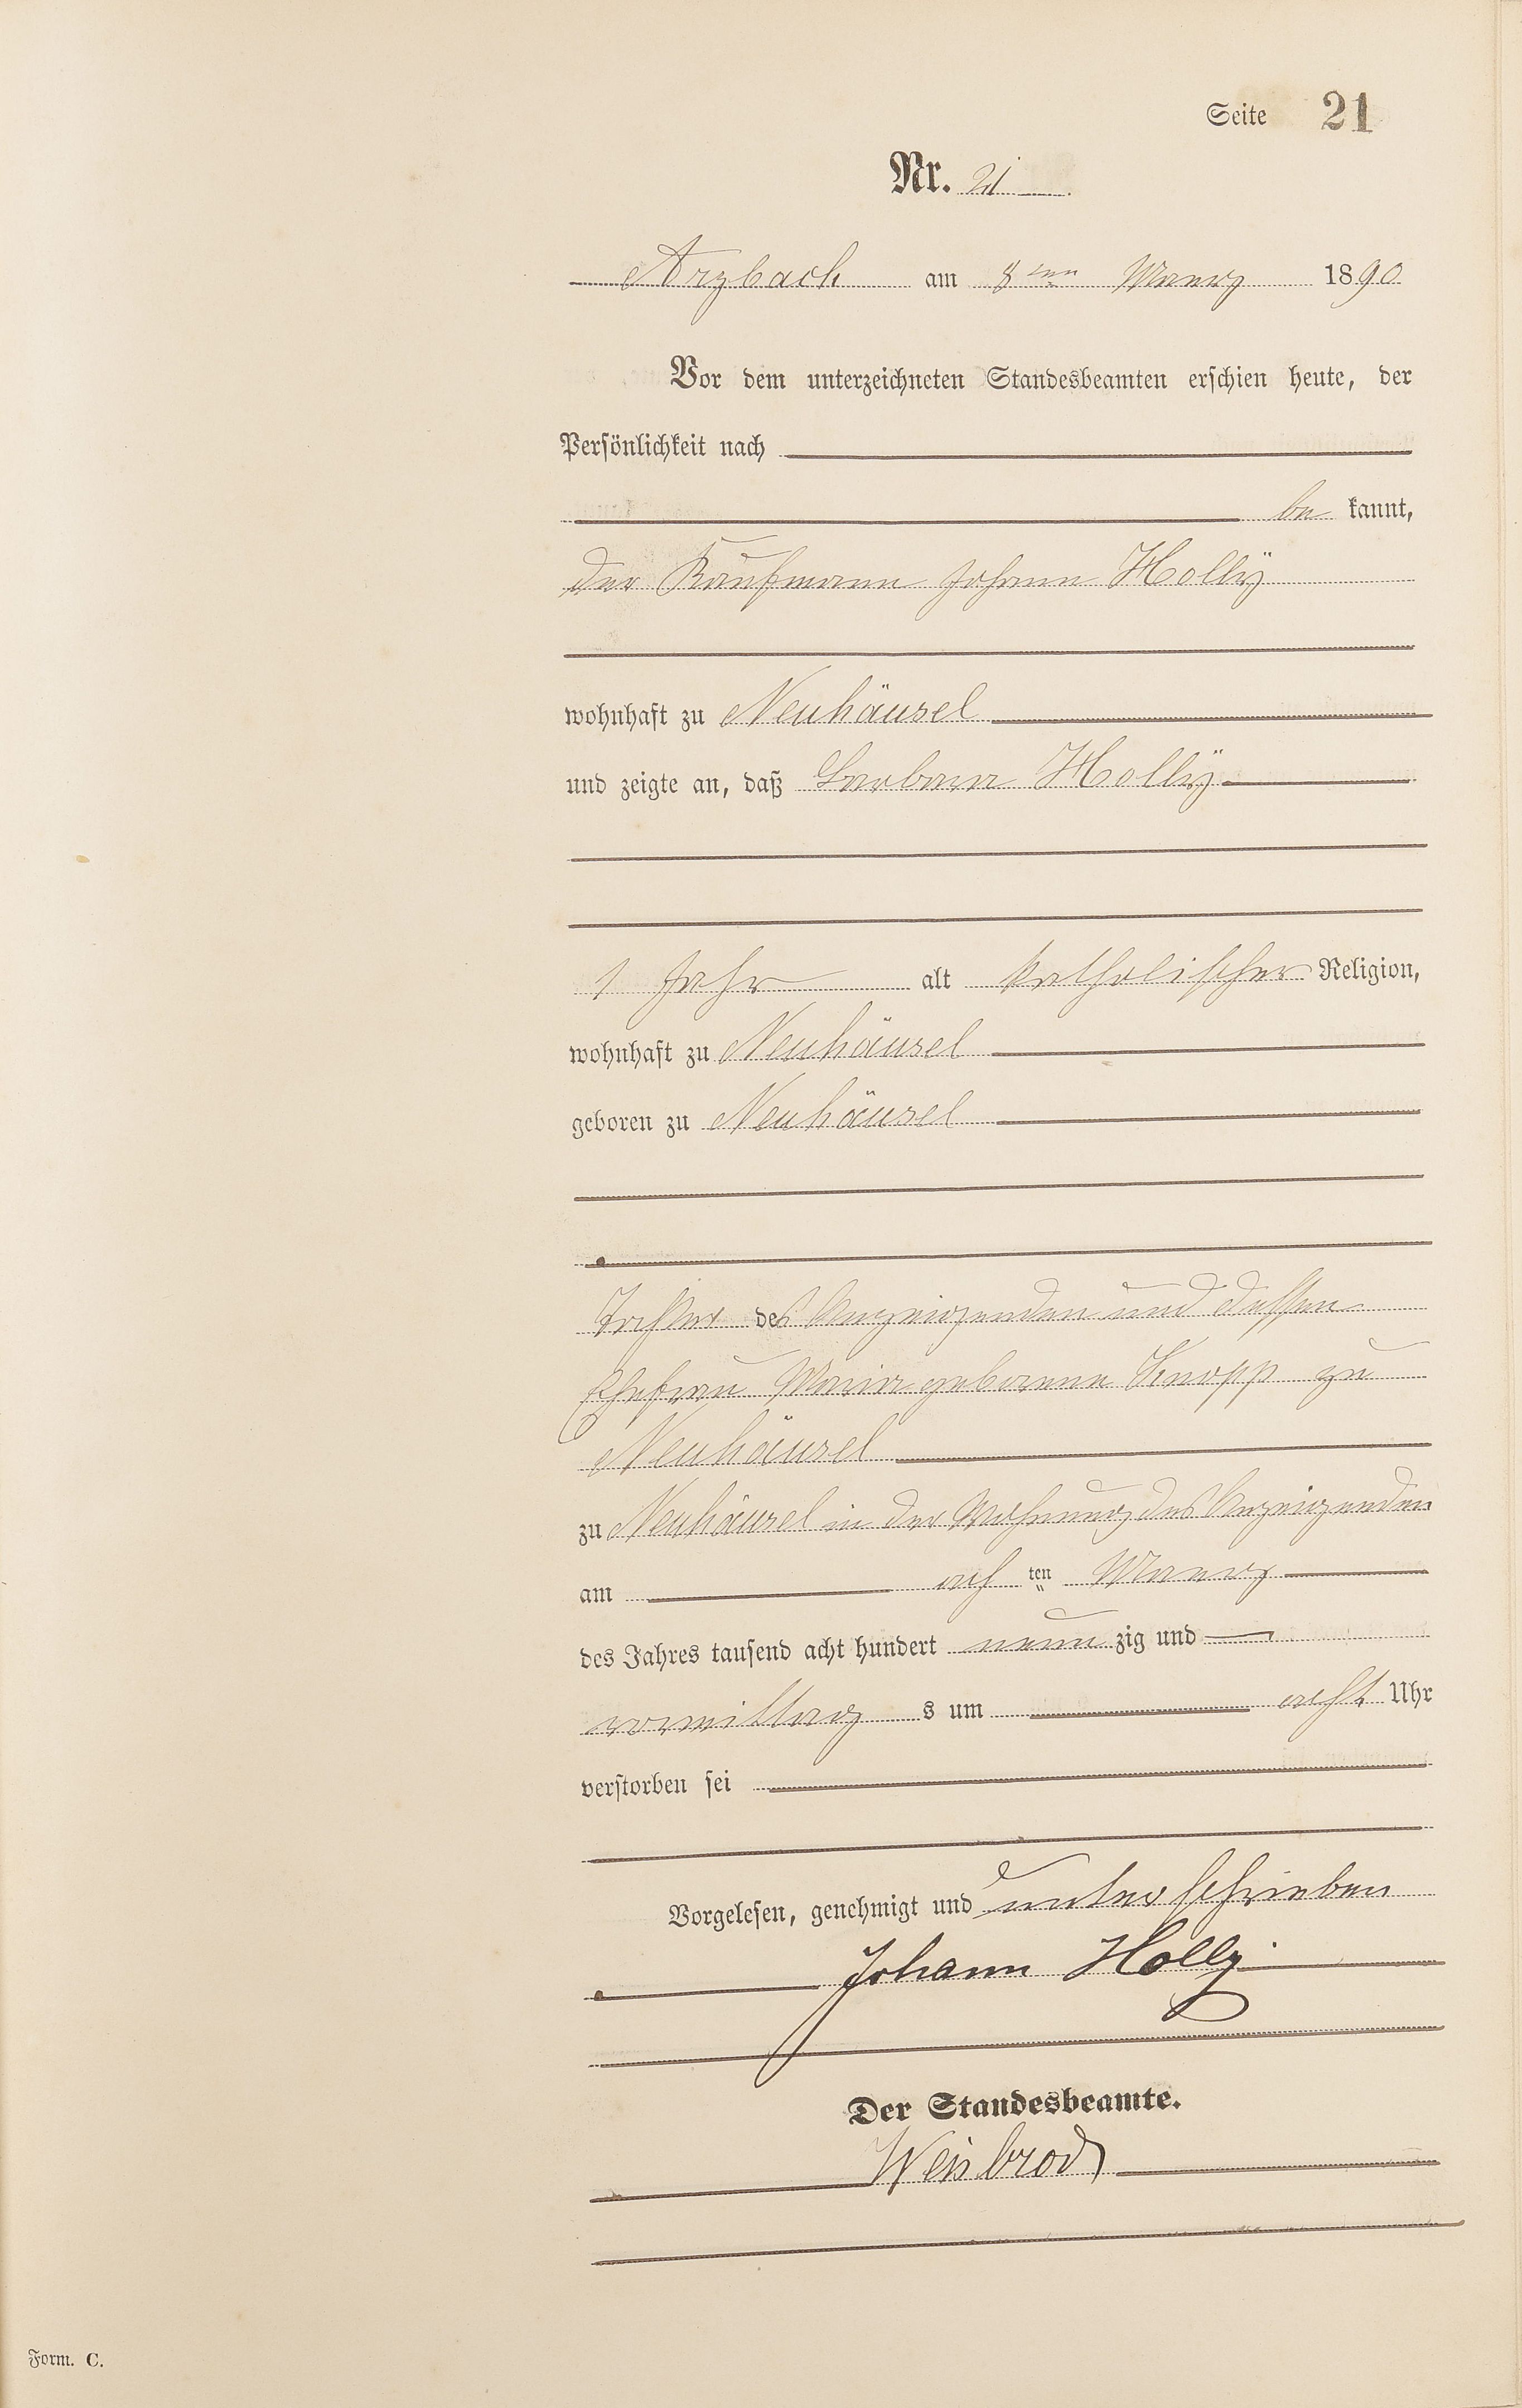 Seite 21
Nr. 21
Arzbach am 8ten Maerz 1890
Vor dem unterzeichneten Standesbeamten erschien heute, der
Persönlichkeit nach
be kannt,
der Kaufmann Johann Hollÿ
wohnhaft zu Neuhäusel
und zeigte an, daß Barbara Hollÿ
1 Jahr alt katholischer Religion,
wohnhaft zu Neuhäusel
geboren zu Neuhäusel
Tochter des Anzeigenden und dessen
Ehefrau Maria geborene Knopp zu
Neuhäusel
zu Neuhäusel in der Wohnung des Anzeigenden
am ach ten Maerz
des Jahres tausend acht hundert neun zig und
vormittag s um acht Uhr
verstorben sei
Vorgelesen, genehmigt und unterschrieben
Johann Holly
Der Standesbeamte.
Weisbrod
Form. C.